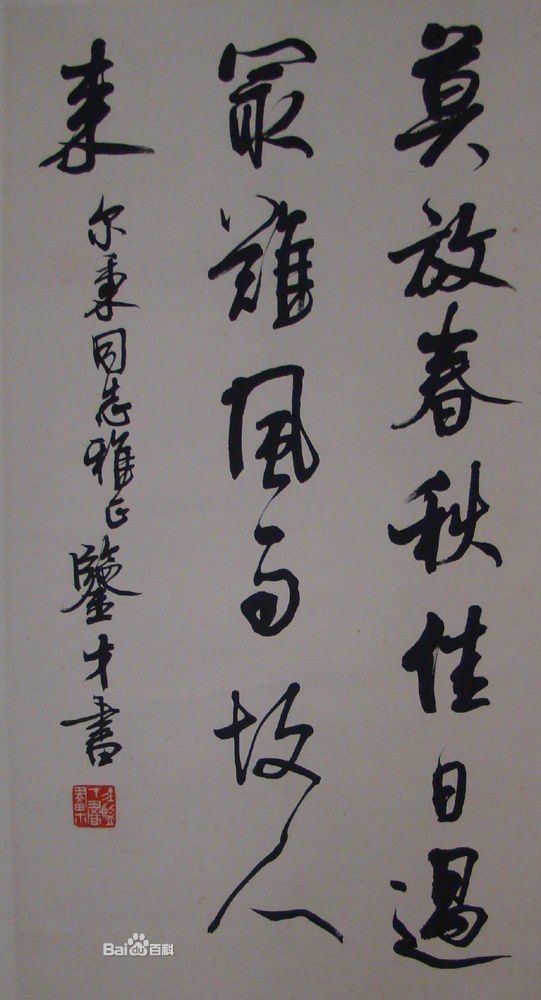 莫放春秋佳日過
最難風雨故人
來
尔秉同志雅正 鑒才書
Bai百科